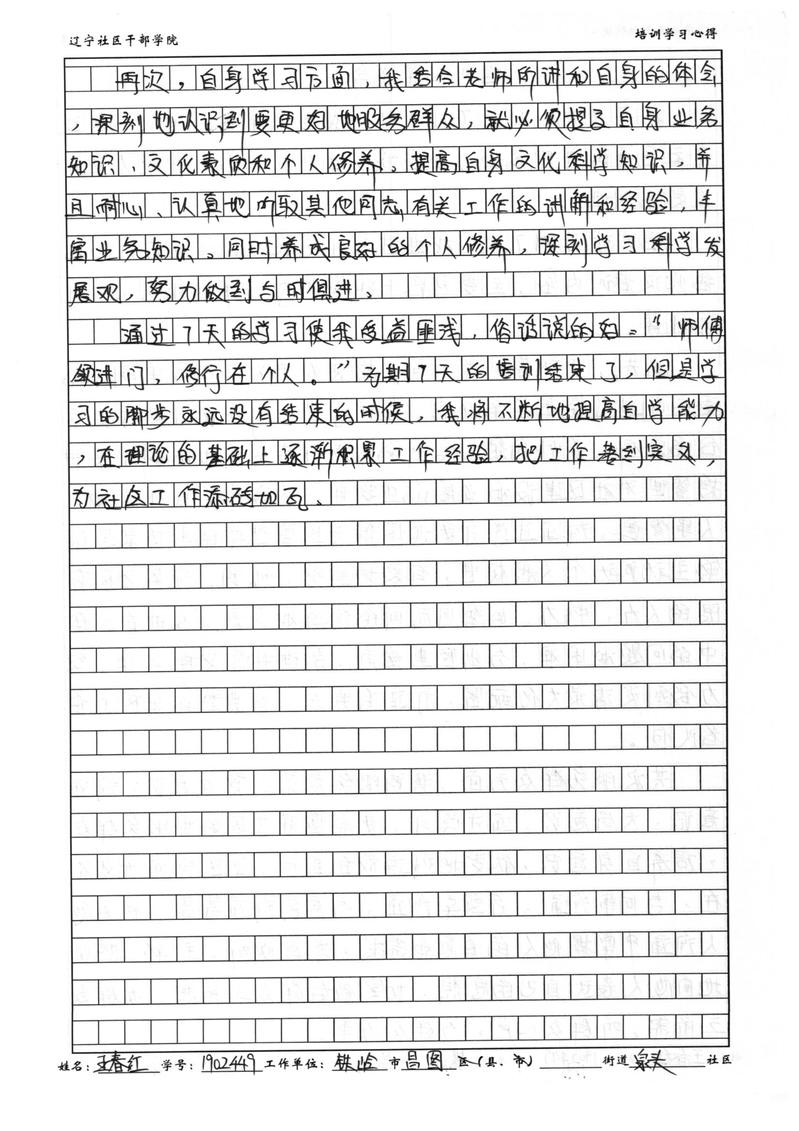 辽宁社区干部学院
培训学习心得
再次，自身学习方面，我结合老师所讲和自身的体会
，深刻地认识到要更好地服务群众，就必须提高自身业务
知识、文化素质和个人修养。提高自身文化科学知识，并
且耐心、认真地听取其他同志有关工作的讲解和经验，丰
富业务知识。同时养成良好的个人修养，深刻学习科学发
展观，努力做到与时俱进、
通过7天的学习使我受益匪浅，俗话说的好："师傅
领进门，修行在个人。"为期7天的培训结束了，但是学
习的脚步永远没有结束的时候，我将不断地提高自学能力
，在理论的基础上逐渐积累工作经验，把工作落到实处，
为社区工作添砖加瓦、
姓名：王春红 学号：1902449 工作单位：铁岭 市 昌图 区（县、市） 街道 泉头 社区